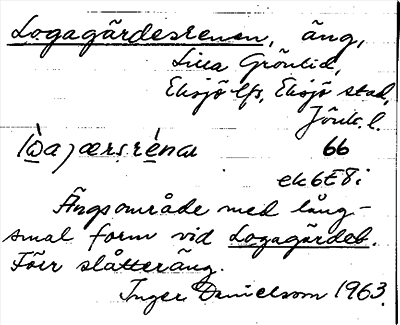 Logagärdesrenen, äng,
Lilla Grönlid,
Eksjö lfs, Eksjö stad,
Jönk. l.
66
ek6E8i
Ängsområde med lång-
smal form vid Logagärdet.
Förr slåtteräng.
Inger Danielsson 1963.